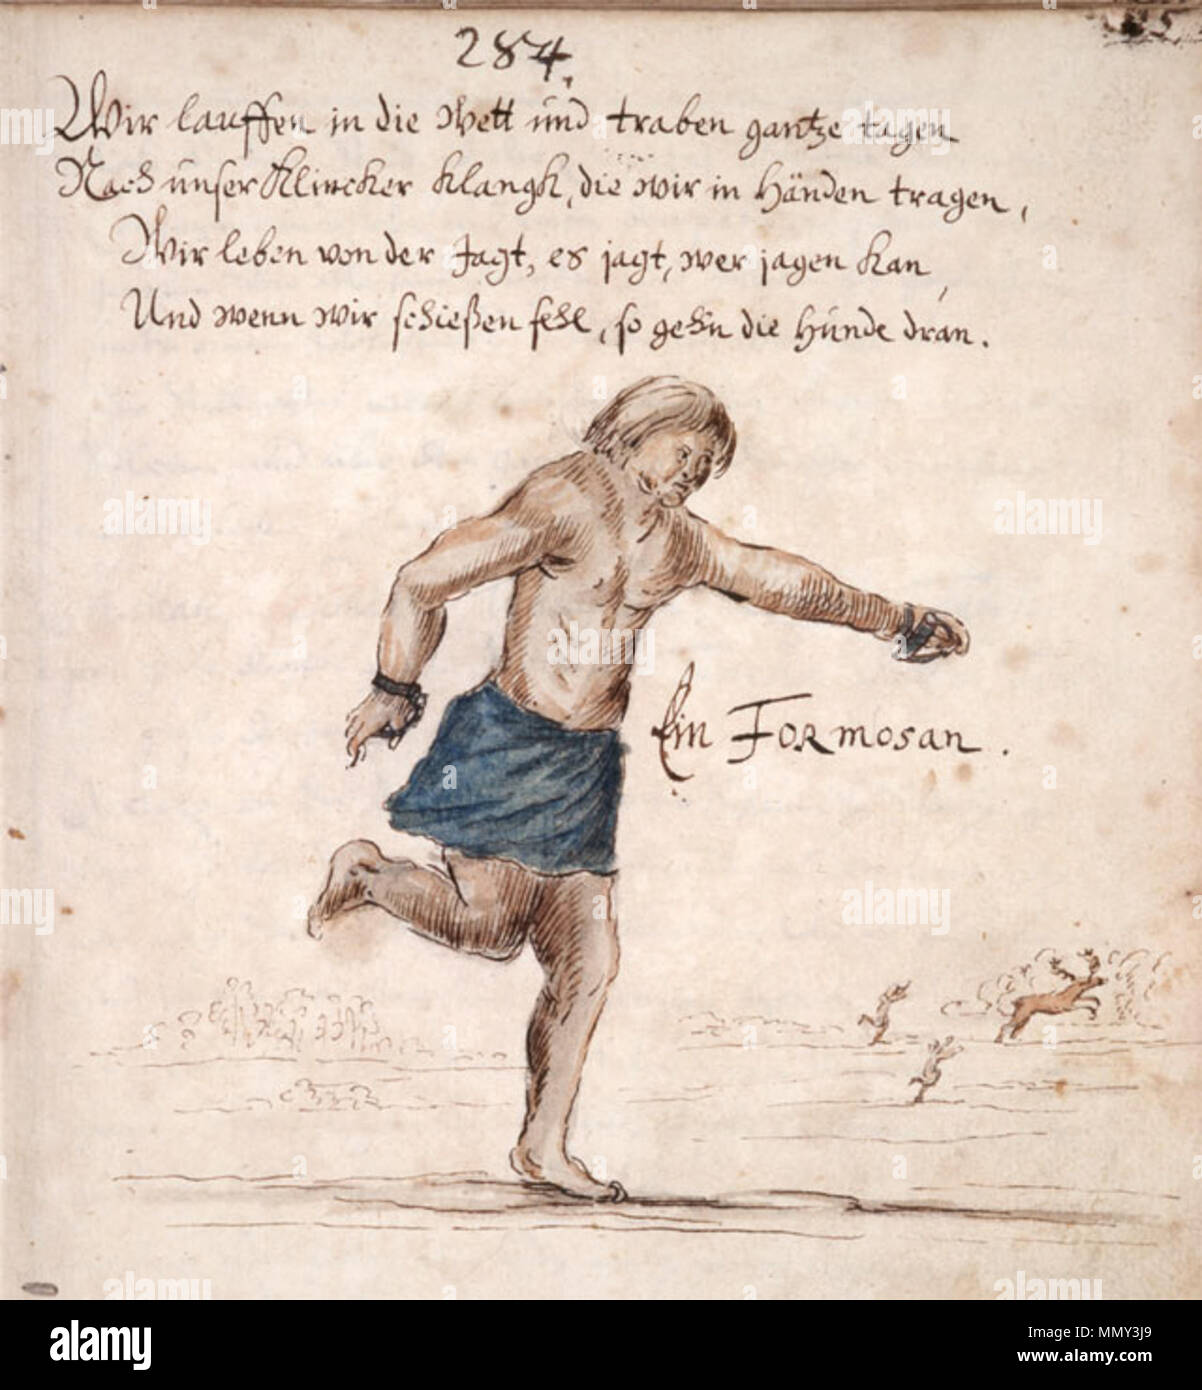 284.
Wir lauffen in die Wett und traben gantze tagen
Nach unser Klincker Klangk, die wir in Händen tragen,
Wir leben von der Jagt, es jagt, wer jagen kan,
Und wenn wir schießen fehl, so gehn die Hunde dran.
Ein Formosan.
alamy
alamy
alamy
alamy
alamy
alamy
Image ID: MMY3J9
www.alamy.com